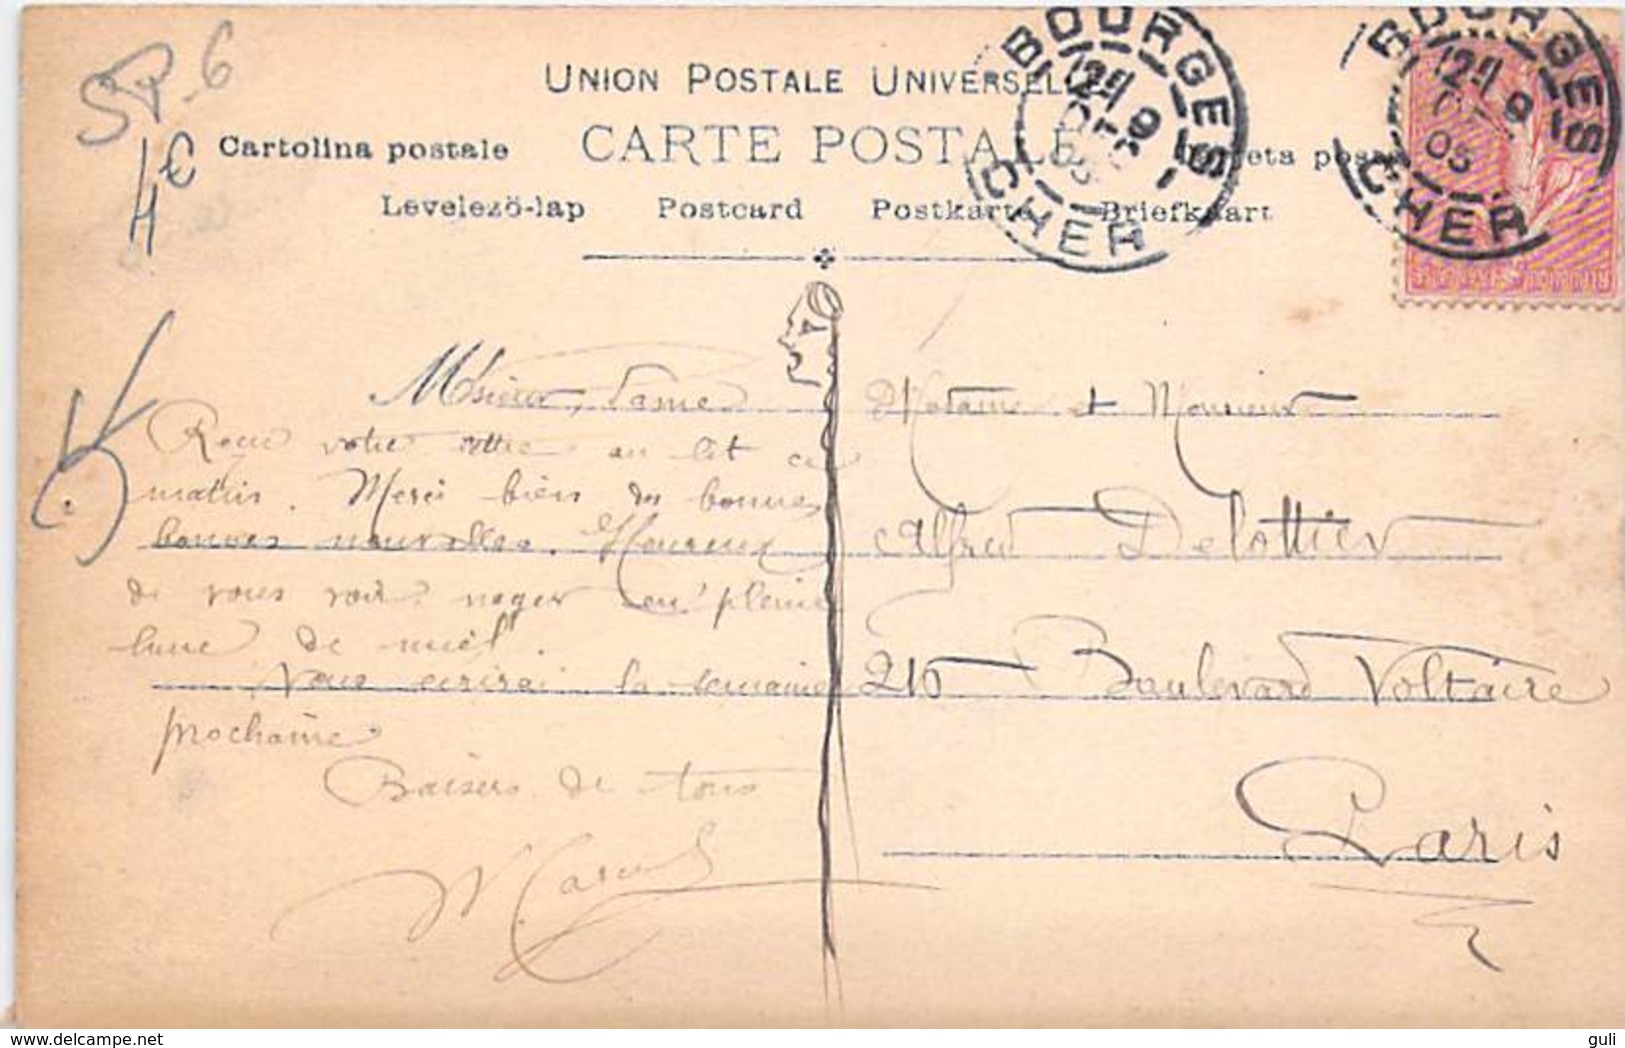 SP-6
4€
UNION POSTALE UNIVERSELLE
Cartolina postale CARTE POSTALE
Levelező-lap Postcard Postkarte Briefkaart
BOURGES
CHER
BOURGES
CHER
05
M'sieur, Dame
Reçu votre lettre au lit ce
matin. Merci bien des bonnes
bonnes nouvelles. Heureux
de vous voir nager en pleine
lune de miel.
Vous écrirai la semaine
prochaine
Baisers de tous
Madame et Monsieur
Alfred Delottier
216 Boulevard Voltaire
Paris
delcampe.net
guli